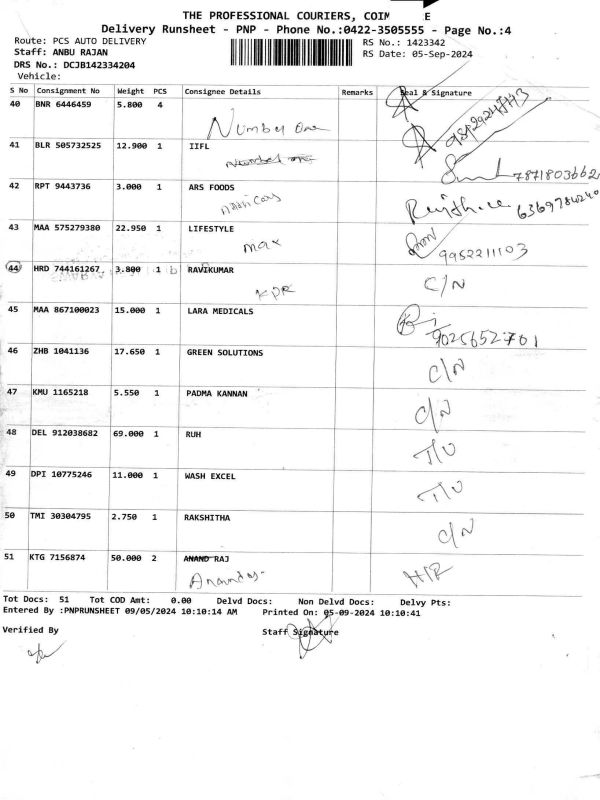 THE PROFESSIONAL COURIERS, COIM E
Delivery Runsheet - PNP - Phone No.:0422-3505555 - Page No.:4
Route: PCS AUTO DELIVERY RS No.: 1423342
Staff: ANBU RAJAN RS Date: 05-Sep-2024
DRS No.: DCJB142334204
Vehicle:
S No Consignment No Weight PCS Consignee Details Remarks Seal & Signature
40 BNR 6446459 5.800 4
Number One
41 BLR 505732525 12.900 1 IIFL
Number one
7871803662
42 RPT 9443736 3.000 1 ARS FOODS
6369784240
43 MAA 575279380 22.950 1 LIFESTYLE
max 9952211103
44 HRD 744161267 3.800 1 RAVIKUMAR C/N
KPR
45 MAA 867100023 15.000 1 LARA MEDICALS
9025652701
46 ZHB 1041136 17.650 1 GREEN SOLUTIONS C/N
47 KMU 1165218 5.550 1 PADMA KANNAN C/N
48 DEL 912038682 69.000 1 RUH T/U
49 DPI 10775246 11.000 1 WASH EXCEL T/U
50 TMI 30304795 2.750 1 RAKSHITHA C/N
51 KTG 7156874 50.000 2 ANAND RAJ
Tot Docs: 51 Tot COD Amt: 0.00 Delvd Docs: Non Delvd Docs: Delvy Pts:
Entered By :PNPRUNSHEET 09/05/2024 10:10:14 AM Printed On: 05-09-2024 10:10:41
Verified By Staff Signature